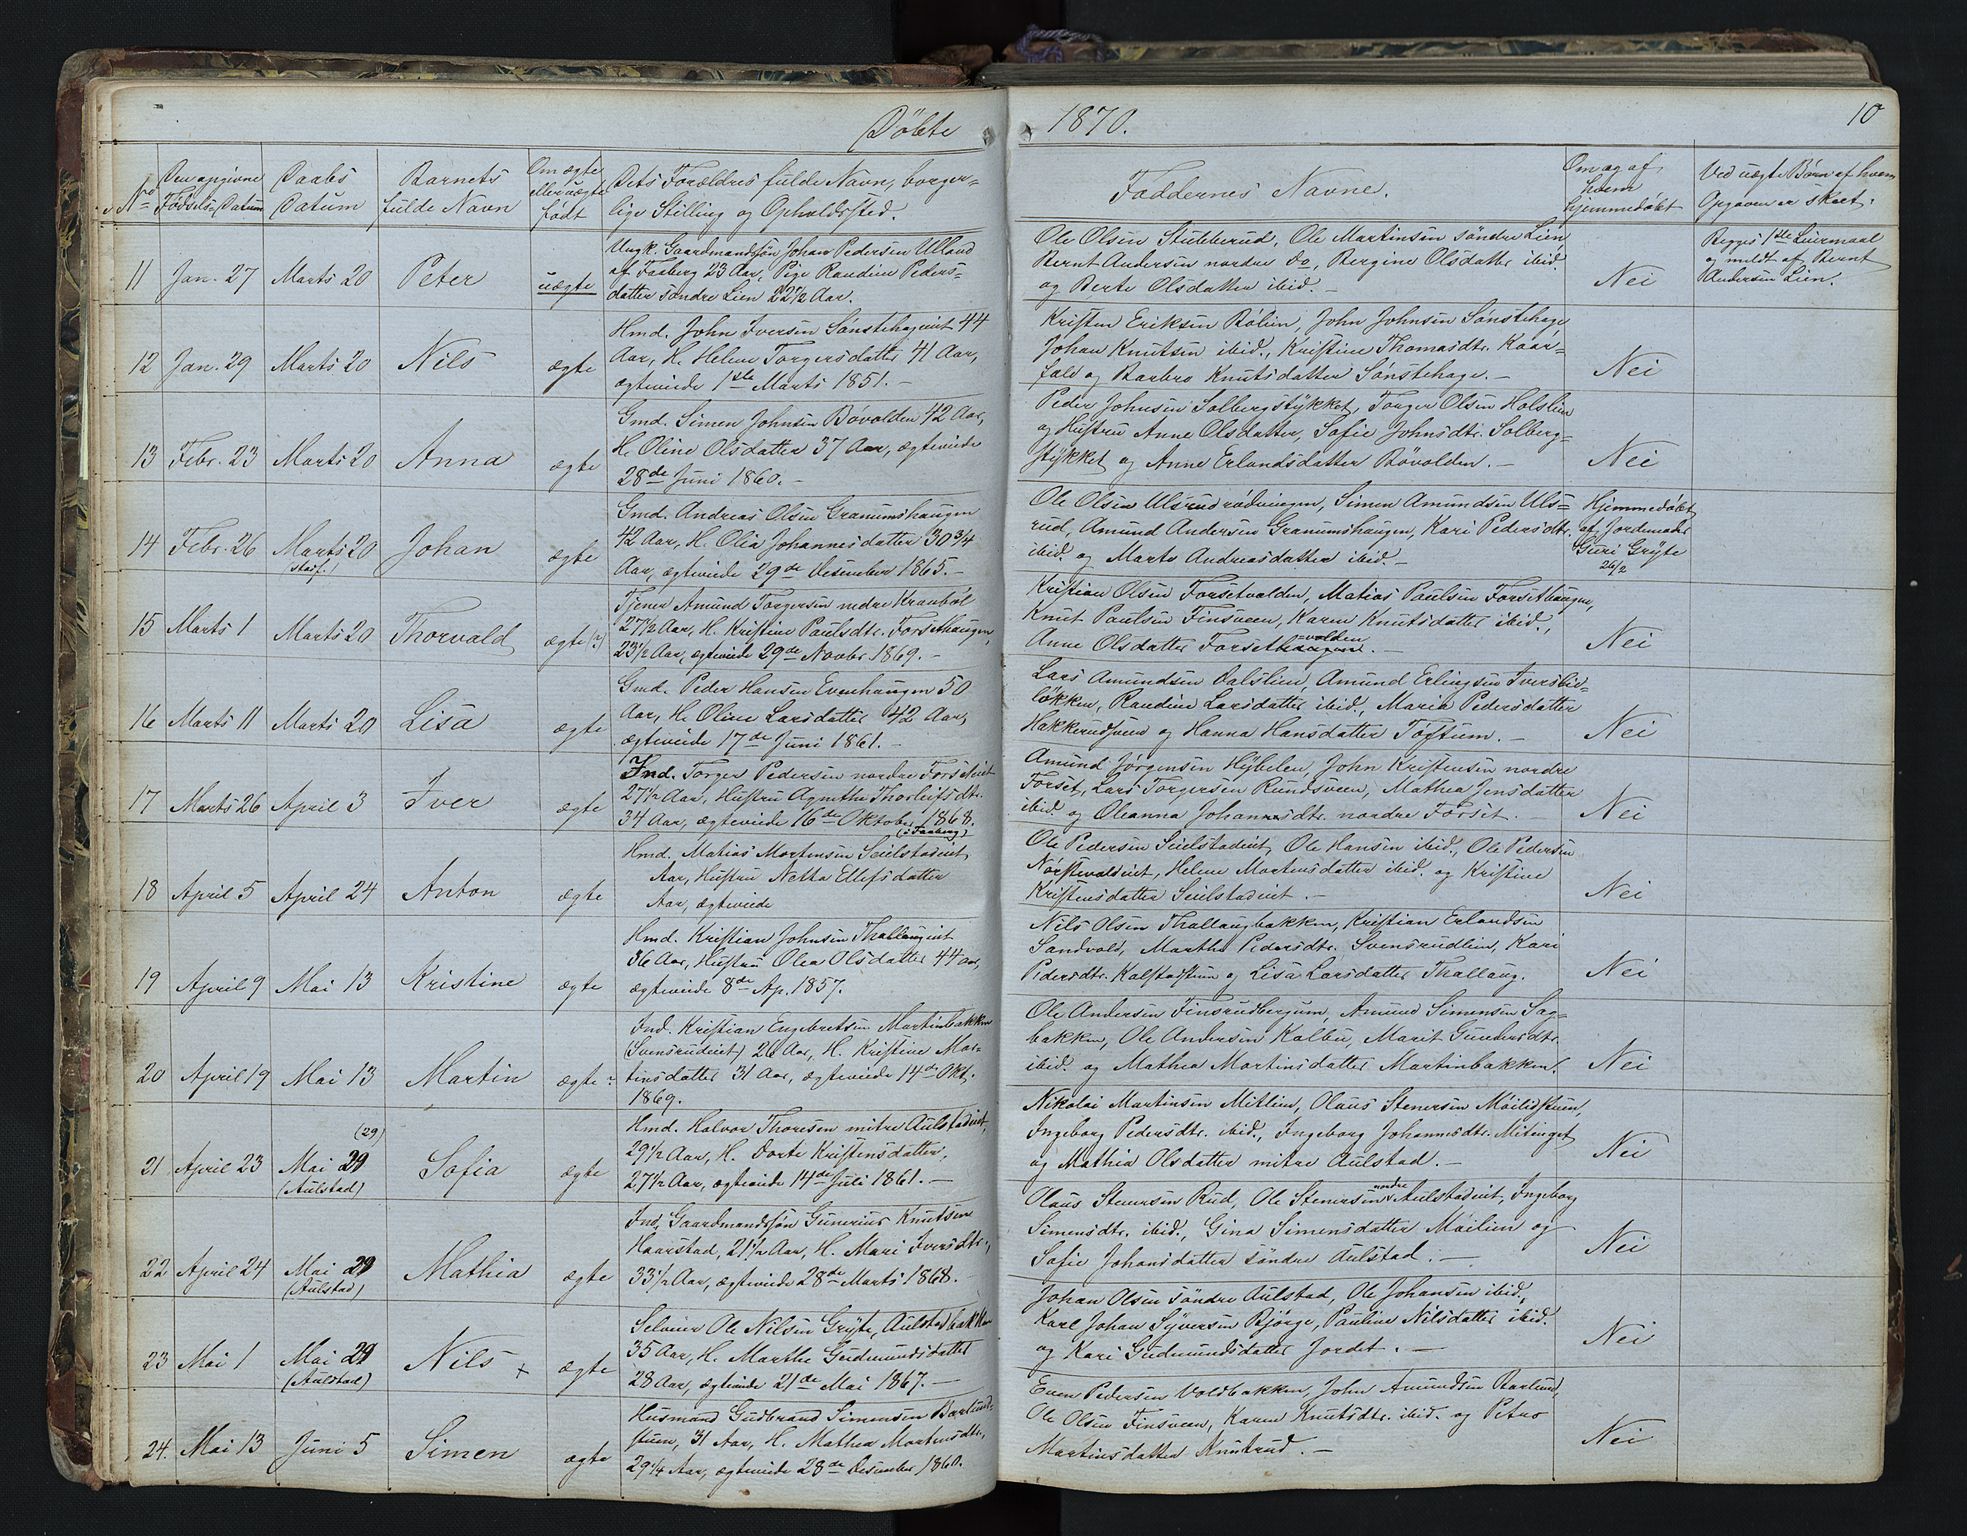 Döbte
1870.
10
No
Den opgivne Födsels Datum
Daabs Datum
Barnets fulde Navn
Om ægte eller uægte födt
Dets Forældres fulde Navn, borger-
lige Stilling og Opholdsted.
Faddernes Navne.
Om og af hvem hjemmedöbt
Ved uægte Börn af hvem Opgaven er skeet.
11 Jan. 27 Marts 20 Peter uægte
Ungk. Gaardmandssön Johan Pedersen Ulland
af Faaberg 23 Aar, Pige Randine Peders-
datter söndre Lien 22½ Aar.
Ole Olsen Stubberud, Ole Martinsen söndre Lien
Bernt Andersen nordre do, Bergine Olsdatter ibid.
og Berte Olsdatter ibid. –
Nei
Begges 1ste Leiermaal
og meldt af Bernt
Andersen Lien.
12 Jan. 29 Marts 20 Nils ægte
Hmd. John Iversen Sönstehageiet 44
Aar, H. Helene Torgersdatter 41 Aar,
ægteviede 1ste Marts 1851. –
Kristen Eriksen Bölien, John Johnsen Sönstehage
Johan Knutsen ibid., Kristine Thomasdtr. Kaar-
fald og Barbro Knutsdatter Sönstehage. –
Nei
13 Febr. 23 Marts 20 Anna ægte
Gmd. Simen Johnsen Bövolden 42 Aar,
H. Oline Olsdatter 37 Aar, ægteviede
28de Juni 1860. –
Peder Johnsen Solbergstykket, Torger Olsen Holslien
og Hustru Anne Olsdatter, Sofie Johnsdtr. Solberg-
stykket og Anne Erlandsdatter Bövolden. –
Nei
14 Febr. 26 Marts 20 (stadf.) Johan ægte
Gmd. Andreas Olsen Granumshaugen
42 Aar, H. Olia Johannesdatter 30 3/4
Aar, ægteviede 29de Desember 1865. –
Ole Olsen Ulsrudrödningen, Simen Amundsen Uls-
rud, Amund Andersen Granumshaugen, Kari Pedersdtr.
ibid. og Marte Andreasdatter ibid. –
Hjemmedöbt
af Jordemoder
Guri Gryte
26/2
15 Marts 1 Marts 20 Thorvald ægte (?)
Tjener Amund Torgersen nedre Kranböl
27½ Aar, H. Kristine Paulsdtr. Forsethaugen,
23½ Aar, ægteviede 29de Novbr. 1869. –
Kristian Olsen Forsetvolden, Matias Paulsen Forsethaugen,
Knut Paulsen Finsveen, Karen Knutsdatter ibid.,
Anne Olsdatter Forsethaugen -volden. –
Nei
16 Marts 11 Marts 20 Lisa ægte
Gmd. Peder Hansen Evenhaugen 50
Aar, H. Oline Larsdatter 42 Aar,
ægteviede 17de Juni 1861. –
Lars Amundsen Dalslien, Amund Erlingsen Iversbie-
lökken, Randine Larsdatter ibid., Maria Pedersdatter
Hakkerudsveen og Hanna Hansdatter Töftum. –
Nei
17 Marts 26 April 3 Iver ægte
Ind. Torger Pedersen nordre Forseteiet
27½ Aar, Hustru Agnethe Thorleifsdtr.
34 Aar, ægteviede 16de Oktober 1868.
(i Faaberg)
Amund Jörgensen Hybelen, John Kristensen nordre
Forset, Lars Torgersen Rundsveen, Mathea Jensdatter
ibid. og Oleanna Johannesdtr. nordre Forset. –
Nei
18 April 5 April 24 Anton ægte
Hmd. Matias Mortensen Seielstadeiet
Aar, Hustru Netta Ellefsdatter
Aar, ægteviede
Ole Pedersen Seielstadeiet, Ole Hansen ibid., Ole Pedersen
Nörstevoldeiet, Helene Mortensdatter ibid. og Kristine
Kristensdatter Seielstadeiet. –
Nei
19 April 9 Mai 13 Kristine ægte
Hmd. Kristian Johnsen Thallaugeiet
36 Aar, Hustru Olea Olsdatter 44 aar,
ægteviede 8de Ap. 1857.
Nils Olsen Thallaugbakken, Kristian Erlandsen
Sandvold, Marthe Pedersdtr. Svensrudlien, Kari
Pedersdtr. Kalstastuen og Lisa Larsdatter Thallaug.
Nei
20 April 19 Mai 13 Martin ægte
Ind. Kristian Engebretsen Martinbakken
(Svensrudeiet) 26 Aar, H. Kristine Mar-
tinsdatter 31 Aar, ægteviede 14de Okt.
1869.
Ole Andersen Finsrudbergum, Amund Simensen Sag-
bakken, Ole Andersen Kalbu, Marit Gundersdtr.
ibid. og Mathea Martinsdatter Martinbakken.
Nei
21 April 23 Mai 29 (29) (Aulstad) Sofia ægte
Hmd. Halvor Thoresen mitre Aulstadeiet,
29½ Aar, H. Dorte Kristensdatter,
27½ Aar, ægteviede 14de Juli 1861. –
Nikolai Martinsen Mitlien, Olaus Stenersen Möilidstuen,
Ingeborg Pedersdtr. ibid., Ingeborg Johannsdtr. Mitingset
og Mathia Olsdatter mitre Aulstad. –
Nei
22 April 24 Mai 29 (Aulstad) Mathia ægte
Ind. Gaardmandssön Gunerius Knutsen
Haarstad, 21½ Aar, H. Mari Iversdtr.,
33½ Aar, ægteviede 28de Marts 1868. –
Olaus Stenersen Rud, Ole Stenersen nordre Aulstadeiet, Ingeborg
Simensdtr. ibid., Gina Simensdatter Möilien og
Sofie Johansdatter söndre Aulstad. –
Nei
23 Mai 1 Mai 29 (Aulstad) Nils + ægte
Selveier Ole Nilsen Gryte, Aulstadbakken
35 Aar, H. Marthe Gudmundsdatter
28 Aar, ægteviede 21de Mai 1867. –
Johan Olsen söndre Aulstad, Ole Johansen ibid,
Karl Johan Syversen Björge, Pauline Nilsdatter ibid.
og Kari Gudmundsdatter Jordet. –
Nei
24. Mai 13 Juni 5 Simen ægte
Husmand Gudbrand Simensen Baarlund-
stuen, 31 Aar, H. Mathea Mortensdtr.,
29¼ Aar, ægteviede 28de Desember 1860.
Even Pedersen Voldbakken, John Amundsen Baarlund,
Ole Olsen Finsveen, Karen Knutsdtr. ibid. og Petro
Martinsdatter Knutrud. –
Nei